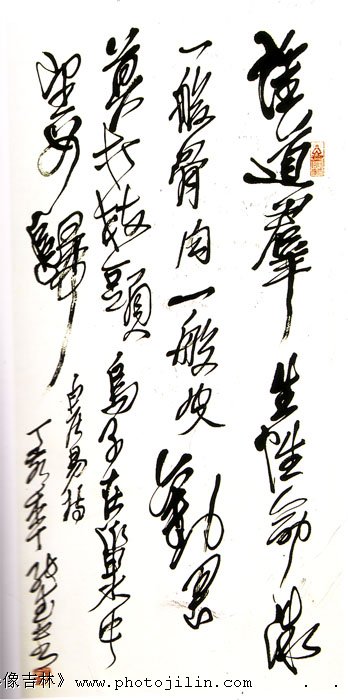 誰道羣生性命微
一般骨肉一般皮勸君
莫打枝頭鳥子在巢中
望母歸
白居易詩
丁亥
像吉林》 www.photojilin.com